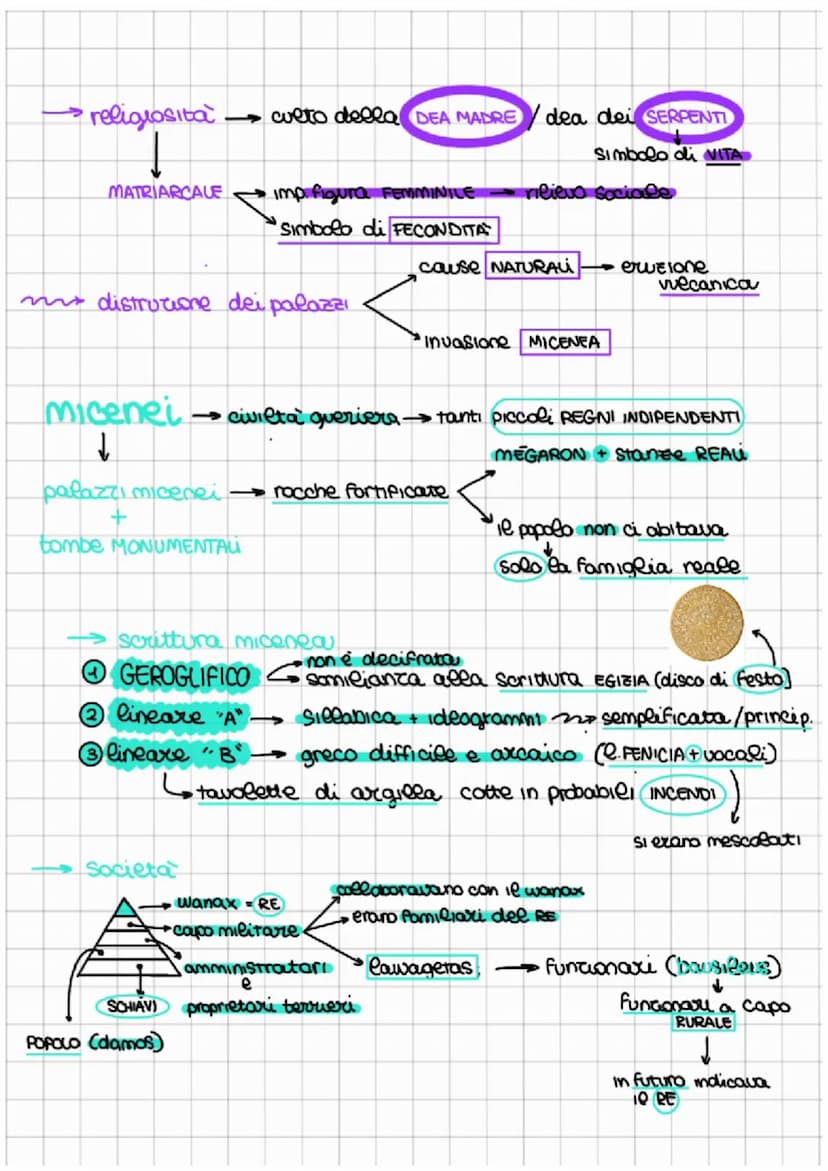 → religiosità → culto della DEA MADRE / dea dei SERPENTI
simbolo di VITA
MATRIARCALE → imp. figura FEMMINILE → rilievo sociale
simbolo di FECONDITÀ
cause NATURALI → eruzione
vulcanica
distruzione dei palazzi
invasione MICENEA
micenei → civiltà gueriera → tanti piccoli REGNI INDIPENDENTI
MĒGARON + stanze REALI
palazzi micenei → rocche fortificate
+
tombe MONUMENTALI
il popolo non ci abitava
solo la famiglia reale
→ scrittura micenea
non è decifrata
1 GEROGLIFICO → somilianza alla scrittura EGIZIA (disco di festo)
2 lineare "A" → sillabica + ideogrammi semplificata/princip.
3 lineare "B" → greco difficile e arcaico (l.FENICIA + vocali)
tavolette di argilla cotte in probabili INCENDI
si erano mescolati
→ società
collaboravano con il wanax
wanax = RE
erano familiari del RE
capo militare
lawagetas → funzionari (bausileus)
amministratori
e
proprietari terrieri
SCHIAVI
funzionari a capo
RURALE
POPOLO (damos)
in futuro indicava
il RE